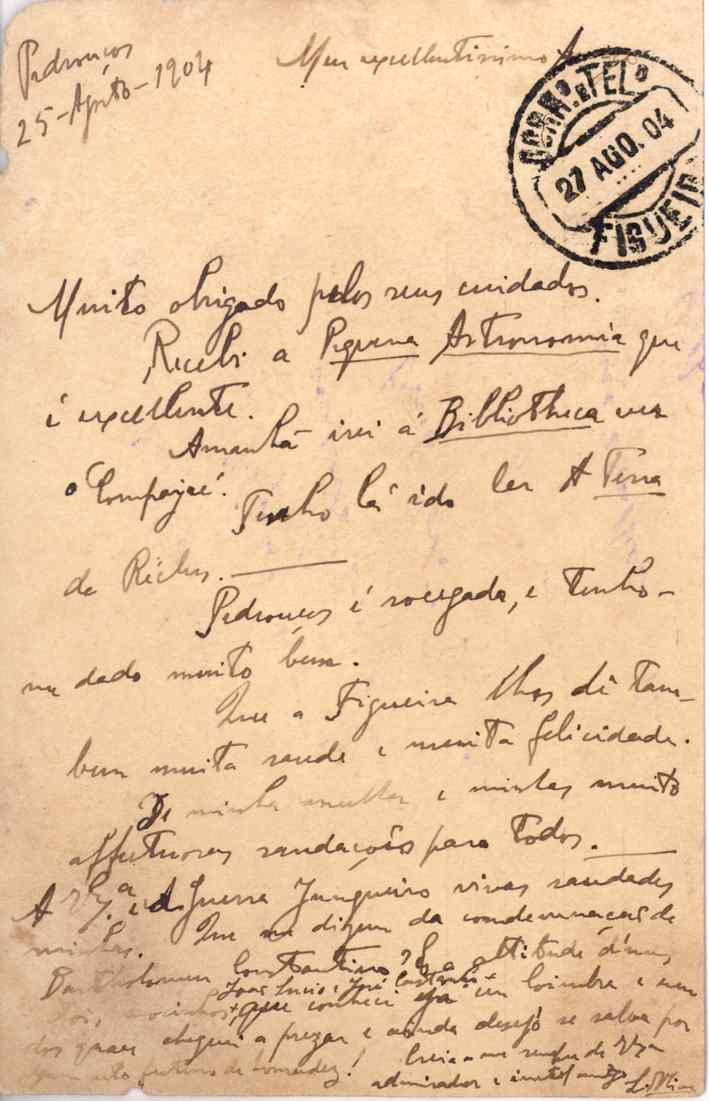 Pedrouços
25-Agosto-1904
Meu excellentissimo A
CORR.º E TEL.º
27 AGO. 04
FIGUEIR
Muito obrigado pelos seus cuidados.
Recebi a Pequena Astronomia que
é excellente.
Amanhã irei á Bibliotheca ver
o Compayré.
Tenho lá ido ler A Terra
de Réclus.
Pedrouços é socegada, e tenho-
me dado muito bem.
Que a Figueira lhes dê tam-
bem muita saude e muita felicidade.
De minha mulher e minhas muito
affectuosas saudações para todos.
A V. Ex.ª e a Guerra Junqueiro vivas saudades
minhas. Que me dizem da condemnação de
Bartholomeu Constantino? E a attitude d'um,
José Lucio e José
dois, que conheci em Coimbra e um
dos quaes cheguei a prezar e ainda desejo se salve por
um acto futuro de honradez! Creia-me sempre de V. Ex.ª
admirador e